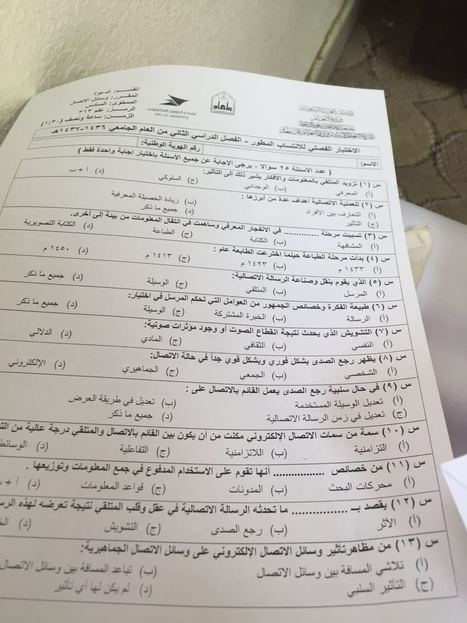 القسم: الدعوة
المقرر: وسائل الاتصال
المستوى: السادس
الزمن: ساعة ونصف (١:٣٠)
الاختبار الفصلي للانتساب المطور - الفصل الدراسي الثاني من العام الجامعي ١٤٣٦-١٤٣٧هـ
الاسم: رقم الهوية الوطنية:
( عدد الأسئلة ٢٥ سؤالا ، يرجى الإجابة عن جميع الأسئلة باختيار إجابة واحدة فقط )
س (١) تزويد المتلقي بالمعلومات والأفكار يشير ذلك إلى التأثير:
أ) المعرفي ب) الوجداني ج) السلوكي د) أ + ب
س (٢) للعملية الاتصالية أهداف عدة من أبرزها :
أ) التعارف بين الأفراد ب) زيادة الحصيلة المعرفية
ج) التأثير د) جميع ما ذكر
س (٣) تسببت مرحلة .............. في الانفجار المعرفي وساهمت في انتقال المعلومات من بيئة إلى أخرى.
أ) المشافهة ب) الكتابة ج) الطباعة د) الكتابة التصويرية
س (٤) بدأت مرحلة الطباعة حينما اخترعت الطابعة عام :
أ) ١٤٣٣ م ب) ١٤٢٣ م ج) ١٤١٣ م د) ١٤٥٠ م
س (٥) الذي يقوم بنقل وصناعة الرسالة الاتصالية:
أ) المرسل ب) المتلقي ج) الوسيلة د) جميع ما ذكر
س (٦) طبيعة الفكرة وخصائص الجمهور من العوامل التي تحكم المرسل في اختيار:
أ) الرسالة ب) الخبرة المشتركة ج) الوسيلة د) جميع ما ذكر
س (٧) التشويش الذي يحدث نتيجة انقطاع الصوت أو وجود مؤثرات صوتية:
أ) النفسي ب) الثقافي ج) المادي د) الدلالي
س (٨) يظهر رجع الصدى بشكل فوري وبشكل قوي جداً في حالة الاتصال:
أ) الشخصي ب) الجمعي ج) الجماهيري د) الإلكتروني
س (٩) في حال سلبية رجع الصدى يعمل القائم بالاتصال على :
أ) تعديل الوسيلة المستخدمة ب) تعديل في طريقة العرض
ج) تعديل في زمن الرسالة الاتصالية د) جميع ما ذكر
س (١٠) سمة من سمات الاتصال الإلكتروني مكنت من أن يكون بين القائم بالاتصال والمتلقي درجة عالية من
أ) التزامنية ب) اللاتزامنية ج) التفاعلية د)
س (١١) من خصائص .............. أنها تقوم على الاستخدام المدفوع في جمع المعلومات وتوزيعها .
أ) محركات البحث ب) المدونات ج) قواعد المعلومات د) أ +
س (١٢) يقصد بـ .............. ما تحدثه الرسالة الاتصالية في عقل وقلب المتلقي نتيجة تعرضه لهذه
أ) الأثر ب) رجع الصدى ج) التشويش د)
س (١٣) من مظاهر تأثير وسائل الاتصال الإلكتروني على وسائل الاتصال الجماهيرية:
أ) تلاشي المسافة بين وسائل الاتصال ب) تباعد المسافة بين وسائل الاتصال
ج) التأثير السلبي د) لم يكن لها أي تأثير